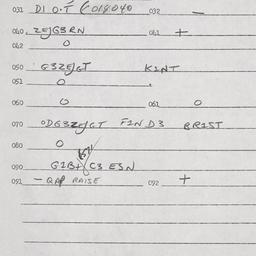 031 DI O.T (018040 032 —
040. ZEJG3RN 041 +
042 O
050 G3ZEJGT K1NT
051 O
060 O 061 O
070 ODG3ZEJGT F1N D3 BR1ST
080 O
090 G1B+ C3 E3N
091 - QAP RAISE 092 +